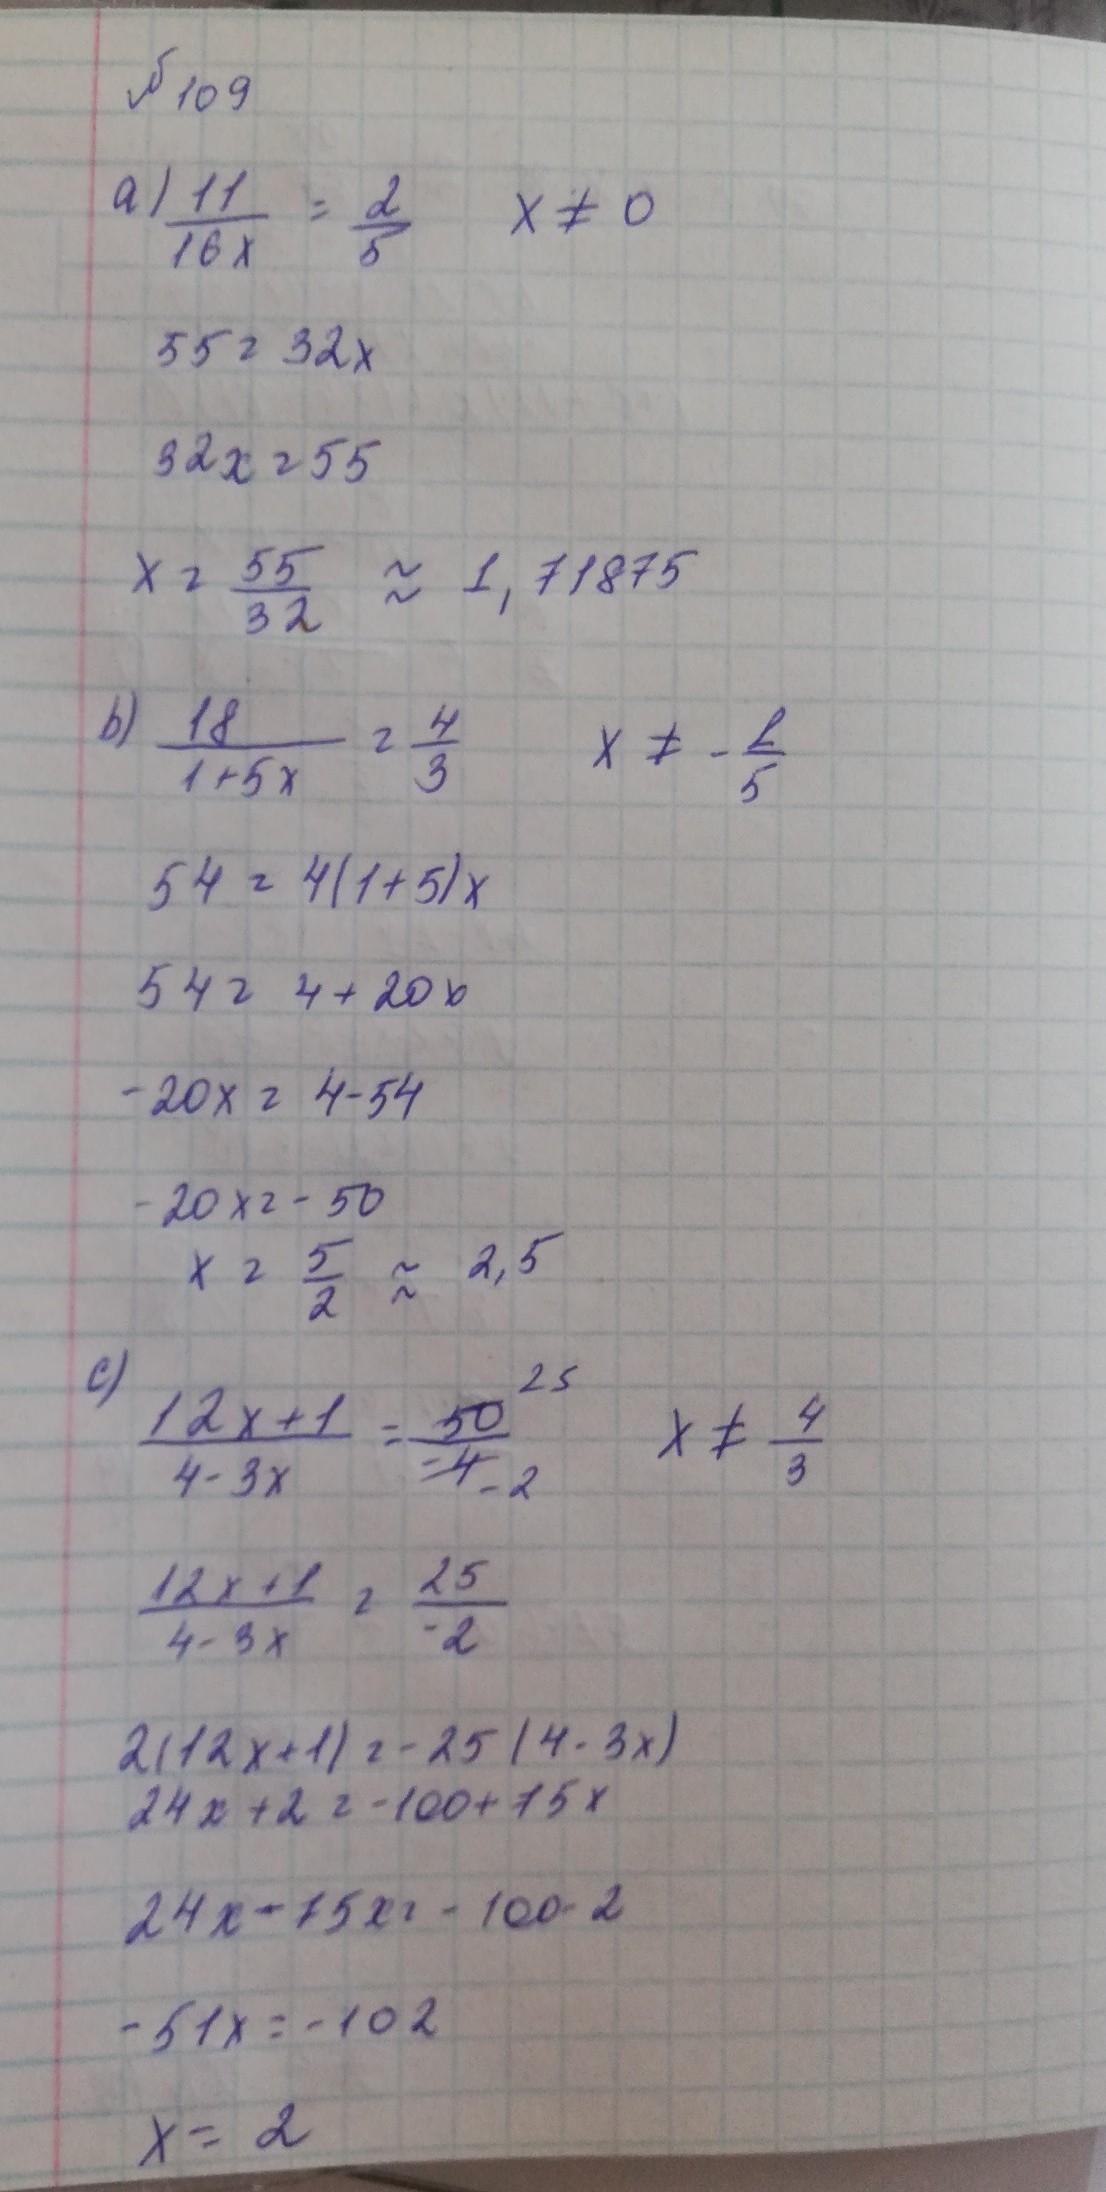 №109
a) 11/16x = 2/5   x ≠ 0
55 = 32x
32x = 55
x = 55/32 ≈ 1,71875
b) 18/(1+5x) = 4/3   x ≠ -1/5
54 = 4(1+5)x
54 = 4+20x
-20x = 4-54
-20x = -50
x = 5/2 ≈ 2,5
c)
(12x+1)/(4-3x) = 50/-4   25   -2   x ≠ 4/3
(12x+1)/(4-3x) = 25/-2
2(12x+1) = -25(4-3x)
24x+2 = -100+75x
24x-75x = -100-2
-51x = -102
x = 2